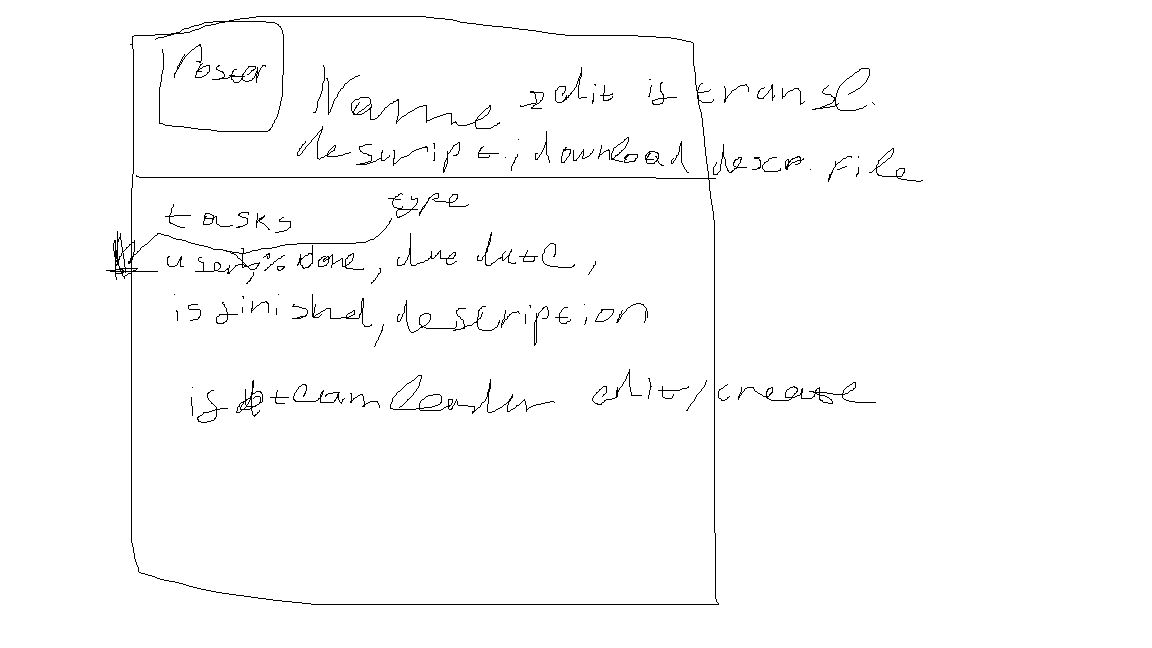 Poster
Name edit if transl.
descript.; download descr. file
tasks
type
user, % done, due date,
is finished, description
if teamleader edit/create